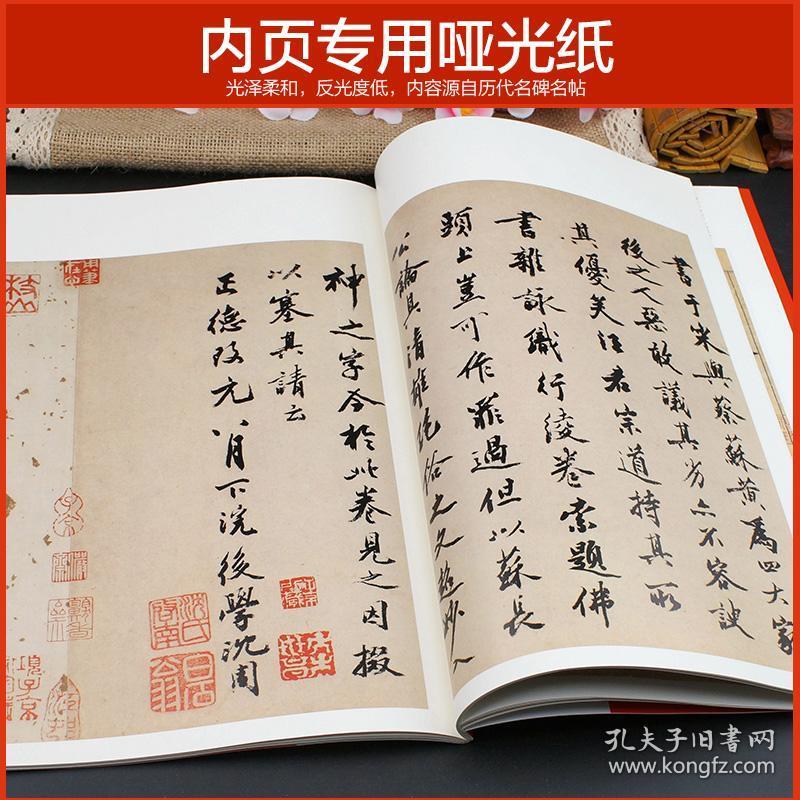 内页专用哑光纸
光泽柔和，反光度低，内容源自历代名碑名帖
書于米與蔡蘇黃爲四大家
後之人惡敢議其劣亦不容諛
其優矣汪君宗道持其所
書雜詠織行綾卷索題佛
頭上豈可作罪過但以蘇長
公論其清雄絕俗之文超妙入
神之字今於此卷見之因掇
以塞其請云
正德改元八月下浣後學沈周
沈氏啓南
孔夫子旧书网
www.kongfz.com